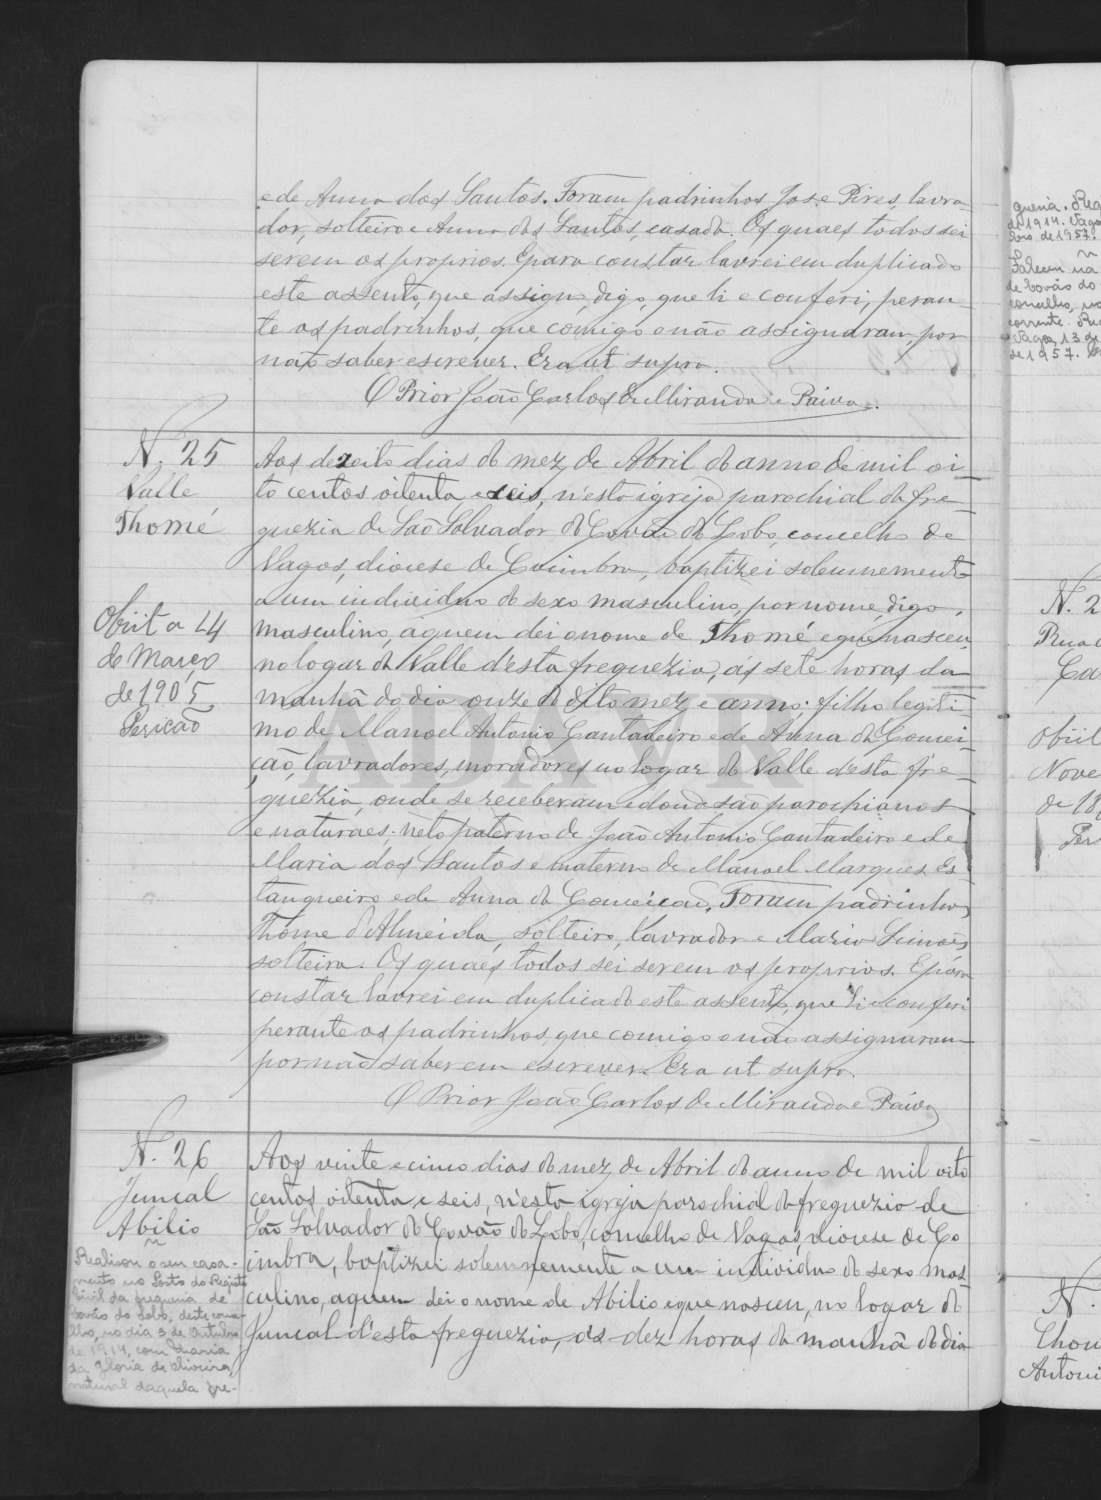 e de Anna dos Santos. Foram padrinhos José Pires, lavra-
dor, solteiro e Anna dos Santos, casada. Os quaes todos sei
serem os proprios. E para constar lavrei em duplicado
este assento, que assigno, digo, que li e conferi, peran-
te os padrinhos, que comigo o não assignaram, por
não saber escrever. Era ut supra.
O Prior João Carlos de Miranda e Paiva.
N. 25
Valle
Thomé
Obiit a 14
de Março
de 1905
Aos dezoito dias do mez de Abril do anno de mil oi-
to centos oitenta e seis, n'esta igreja parochial da fre-
guezia de São Salvador do Covão do Lobo, concelho de
Vagos, diocese de Coimbra, baptizei solemnemente
a um individuo do sexo masculino, por nome, digo,
masculino, a quem dei o nome de Thomé e que nasceu
no logar do Valle d'esta freguezia, ás sete horas da
manhã do dia onze do dito mez e anno; filho legiti-
mo de Manoel Antonio Cantadeiro e de Anna da Concei-
ção, lavradores, moradores no logar do Valle d'esta fre-
guezia, onde se receberam e donde são parochianos
e naturaes: neto paterno de João Antonio Cantadeiro e de
Maria dos Santos e materno de Manoel Marques Es-
tanqueiro e de Anna da Conceicão. Foram padrinhos
Thome d'Almeida, solteiro, lavrador e Maria Simões,
solteira. Os quaes todos sei serem os proprios. E para
constar lavrei em duplicado este assento, que li e conferi
perante os padrinhos, que comigo o não assignaram
por não saberem escrever. Era ut supra.
O Prior João Carlos de Miranda e Paiva
N. 26
Juncal
Abilio
Realizou o seu casa-
mento no Posto do Registo
Civil da freguesia de
Covão do Lobo, deste conce-
lho, no dia 3 de Outubro
de 1914, com Maria
da Gloria de Oliveira,
natural daquela fre-
Aos vinte e cinco dias do mez de Abril do anno de mil oito
centos oitenta e seis, n'esta igreja parochial da freguezia de
São Salvador do Covão do Lobo, concelho de Vagos, diocese de Co
imbra, baptizei solemnemente a um individuo do sexo mas
culino, a quem dei o nome de Abilio e que nasceu, no logar do
Juncal d'esta freguezia, ás dez horas da manhã do dia
ADAVR
guesia.
de 1914. Vagos
de 1957.
Faleceu na
de Covão do
concelho, no
corrente.
Vagos, 13 de
de 1957.
N. 2
Obiit
Nove
de 18
N.
Antoni